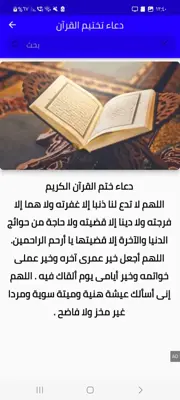 ١٢:٤٠
دعاء تختيم القرآن
بحث
دعاء ختم القرآن الكريم
اللهم لا تدع لنا ذنبا إلا غفرته ولا هما إلا
فرجته ولا دينا إلا قضيته ولا حاجة من حوائج
الدنيا والآخرة إلا قضيتها يا أرحم الراحمين.
اللهم أجعل خير عمرى آخره وخير عملى
خواتمه وخير أيامى يوم ألقاك فيه . اللهم
إنى أسألك عيشة هنية وميتة سوية ومردا
غير مخز ولا فاضح .